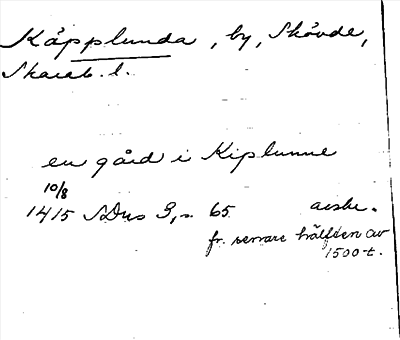 Käpplunda, by, Skövde,
Skarab. l.
en gård i Kiplunne
10/8
1415 SDns 3, s. 65 avskr.
fr. senare hälften av
1500-t.